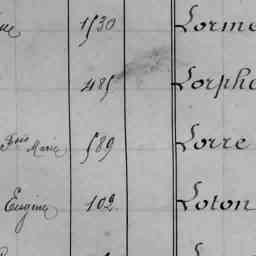 1530 Lorme
485 Lorpho
Fçois Marie 589 Lorre
Eugène 102 Loton